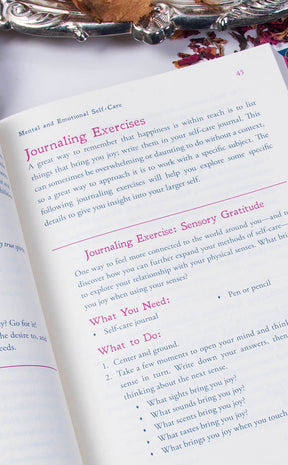 true spir
y? Go for it!
the desire to, and
eeds.
Mental and Emotional Self-Care
43
Journaling Exercises
A great way to remember that happiness is within reach is to list
things that bring you joy; write them in your self-care journal. This
can sometimes be overwhelming or daunting to do without a context,
so a great way to approach it is to work with a specific subject. The
following journaling exercises will help you explore some specific
details to give you insight into your larger self.
Journaling Exercise: Sensory Gratitude
One way to feel more connected to the world around you—and to
discover how you can further expand your methods of self-care—
to explore your relationship with your physical senses. What brin
you joy when using your senses?
What You Need:
• Self-care journal
• Pen or pencil
What to Do:
1. Center and ground.
2. Take a few moments to open your mind and think
sense in turn. Write down your answers, then
thinking about the next sense.
• What sights bring you joy?
• What sounds bring you joy?
• What scents bring you joy?
• What tastes bring you joy?
• What brings you joy when you touch